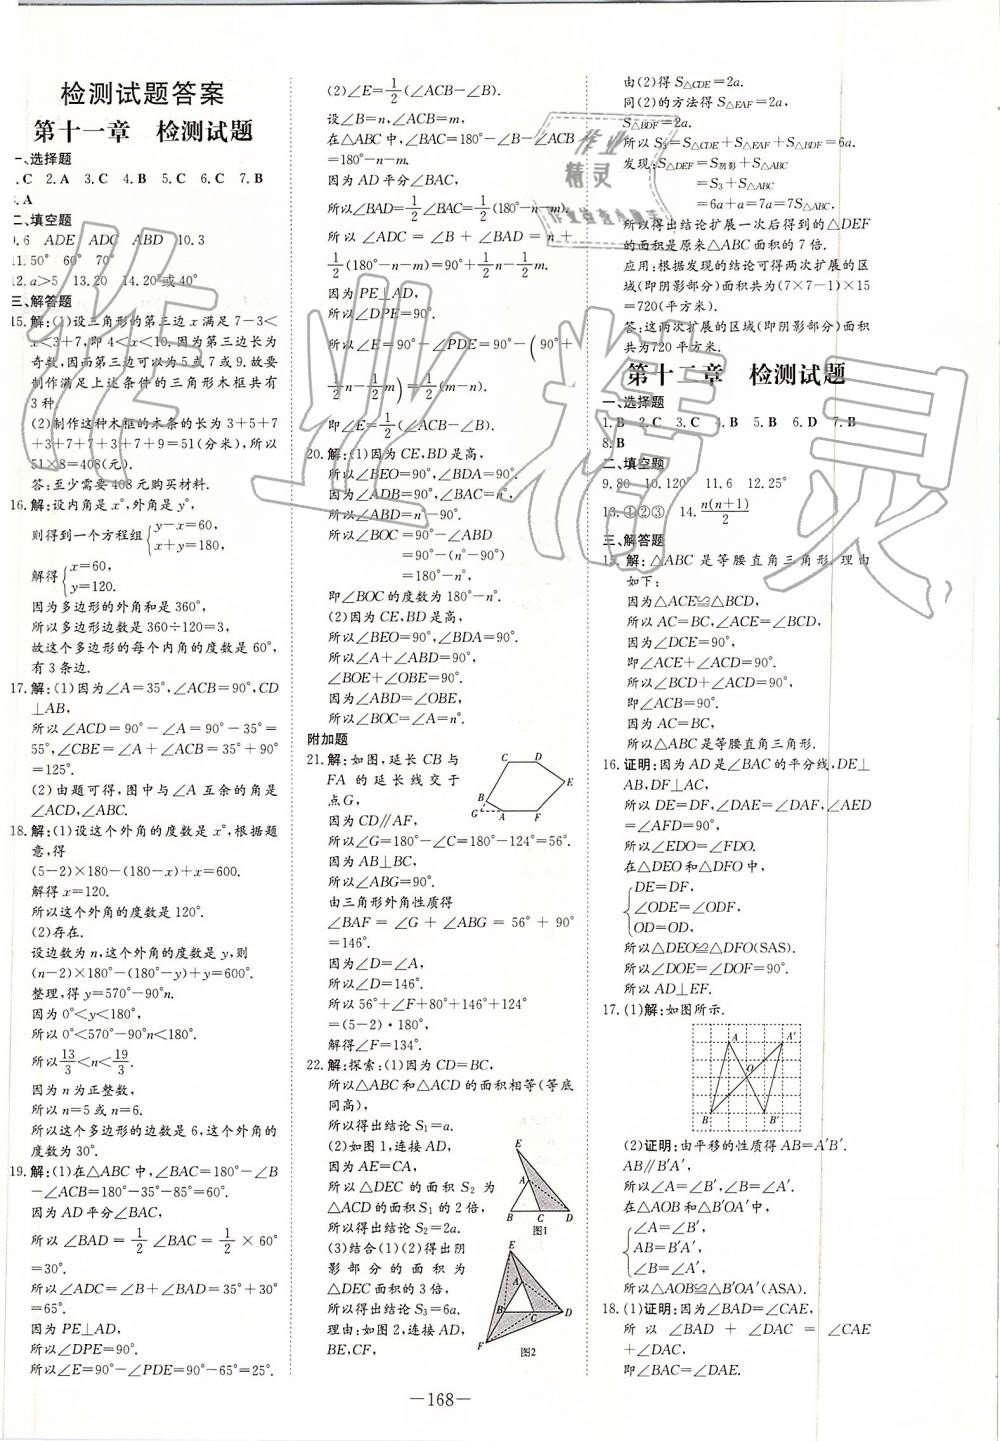 检测试题答案
第十一章 检测试题
一、选择题
1.C 2.A 3.C 4.B 5.C 6.C 7.B
8.A
二、填空题
9.6 ADE ADC ABD 10.3
11.50° 60° 70°
12.a>5 13.20 14.20°或40°
三、解答题
15.解:(1)设三角形的第三边x满足7-3<
x<3+7,即4<x<10.因为第三边长为
奇数,因而第三边可以为5或7或9.故要
制作满足上述条件的三角形木框共有
3种.
(2)制作这种木框的木条的长为3+5+7
+3+7+7+3+7+9=51(分米),所以
51×8=408(元).
答:至少需要408元购买材料.
16.解:设内角是x°,外角是y°,
则得到一个方程组{y-x=60, x+y=180,
解得{x=60, y=120.
因为多边形的外角和是360°,
所以多边形边数是360÷120=3,
故这个多边形的每个内角的度数是60°,
有3条边.
17.解:(1)因为∠A=35°,∠ACB=90°,CD
⊥AB,
所以∠ACD=90°-∠A=90°-35°=
55°,∠CBE=∠A+∠ACB=35°+90°
=125°.
(2)由题可得,图中与∠A互余的角是
∠ACD,∠ABC.
18.解:(1)设这个外角的度数是x°,根据题
意,得
(5-2)×180-(180-x)+x=600.
解得x=120.
所以这个外角的度数是120°.
(2)存在.
设边数为n,这个外角的度数是y,则
(n-2)×180°-(180°-y)+y=600°.
整理,得y=570°-90°n.
因为0°<y<180°,
所以0°<570°-90°n<180°.
所以13/3<n<19/3.
因为n为正整数,
所以n=5或n=6.
所以这个多边形的边数是6,这个外角的
度数为30°.
19.解:(1)在△ABC中,∠BAC=180°-∠B
-∠ACB=180°-35°-85°=60°.
因为AD平分∠BAC,
所以∠BAD=1/2∠BAC=1/2×60°
=30°.
所以∠ADC=∠B+∠BAD=35°+30°
=65°.
因为PE⊥AD,
所以∠DPE=90°.
所以∠E=90°-∠PDE=90°-65°=25°.
(2)∠E=1/2(∠ACB-∠B).
设∠B=n,∠ACB=m,
在△ABC中,∠BAC=180°-∠B-∠ACB
=180°-n-m.
因为AD平分∠BAC,
所以∠BAD=1/2∠BAC=1/2(180°-n-m).
所以∠ADC=∠B+∠BAD=n+
1/2(180°-n-m)=90°+1/2n-1/2m.
因为PE⊥AD,
所以∠DPE=90°.
所以∠E=90°-∠PDE=90°-(90°+
1/2n-1/2m)=1/2(m-n).
即∠E=1/2(∠ACB-∠B).
20.解:(1)因为CE,BD是高,
所以∠BEO=90°,∠BDA=90°.
因为∠ADB=90°,∠BAC=n°,
所以∠ABD=n°-90°.
所以∠BOC=90°-∠ABD
=90°-(n°-90°)
=180°-n°,
即∠BOC的度数为180°-n°.
(2)因为CE,BD是高,
所以∠BEO=90°,∠BDA=90°.
所以∠A+∠ABD=90°,
∠BOE+∠OBE=90°.
因为∠ABD=∠OBE,
所以∠BOC=∠A=n°.
附加题
21.解:如图,延长CB与
FA的延长线交于
点G,
因为CD∥AF,
所以∠G=180°-∠C=180°-124°=56°.
因为AB⊥BC,
所以∠ABG=90°.
由三角形外角性质得
∠BAF=∠G+∠ABG=56°+90°
=146°.
因为∠D=∠A,
所以∠D=146°.
所以56°+∠F+80°+146°+124°
=(5-2)·180°,
解得∠F=134°.
C D E B G A F
22.解:探索:(1)因为CD=BC,
所以△ABC和△ACD的面积相等(等底
同高),
所以得出结论S1=a.
(2)如图1,连接AD,
因为AE=CA,
所以△DEC的面积S2为
△ACD的面积S1的2倍,
所以得出结论S2=2a.
(3)结合(1)(2)得出阴
影部分的面积为
△DEC面积的3倍,
所以得出结论S3=6a.
理由:如图2,连接AD,
BE,CF,
E A B C D
图1
E A B C D F
图2
由(2)得S△CDE=2a.
同(2)的方法得S△EAF=2a,
S△BDF=2a.
所以S3=S△CDE+S△EAF+S△BDF=6a.
发现:S△DEF=S阴影+S△ABC
=S3+S△ABC
=6a+a=7a=7S△ABC.
所以得出结论扩展一次后得到的△DEF
的面积是原来△ABC面积的7倍.
应用:根据发现的结论可得两次扩展的区
域(即阴影部分)面积共为(7×7-1)×15
=720(平方米).
答:这两次扩展的区域(即阴影部分)面积
共为720平方米.
第十二章 检测试题
一、选择题
1.B 2.C 3.C 4.B 5.B 6.D 7.B
8.B
二、填空题
9.80 10.120° 11.6 12.25°
13.①②③ 14.n(n+1)/2
三、解答题
15.解:△ABC是等腰直角三角形.理由
如下:
因为△ACE≌△BCD,
所以AC=BC,∠ACE=∠BCD.
因为∠DCE=90°.
即∠ACE+∠ACD=90°.
所以∠BCD+∠ACD=90°,
即∠ACB=90°.
因为AC=BC,
所以△ABC是等腰直角三角形.
16.证明:因为AD是∠BAC的平分线,DE⊥
AB,DF⊥AC,
所以DE=DF,∠DAE=∠DAF,∠AED
=∠AFD=90°,
所以∠EDO=∠FDO.
在△DEO和△DFO中,
{DE=DF,
∠ODE=∠ODF,
OD=OD,
所以△DEO≌△DFO(SAS).
所以∠DOE=∠DOF=90°.
所以AD⊥EF.
17.(1)解:如图所示.
A A′ O B B′
(2)证明:由平移的性质得AB=A′B′.
AB∥B′A′,
所以∠A=∠B′,∠B=∠A′.
在△AOB和△B′OA′中,
{∠A=∠B′,
AB=B′A′,
∠B=∠A′,
所以△AOB≌△B′OA′(ASA).
18.(1)证明:因为∠BAD=∠CAE,
所以∠BAD+∠DAC=∠CAE
+∠DAC.
即∠BAC=∠DAE.
—168—
作业精灵
作业
精灵